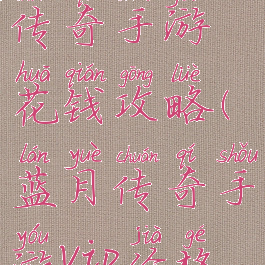 传奇手游
huā qián gōng lüè
花钱攻略(
lán yuè chuán qí shǒu
蓝月传奇手
yóu jià gé
游vip价格